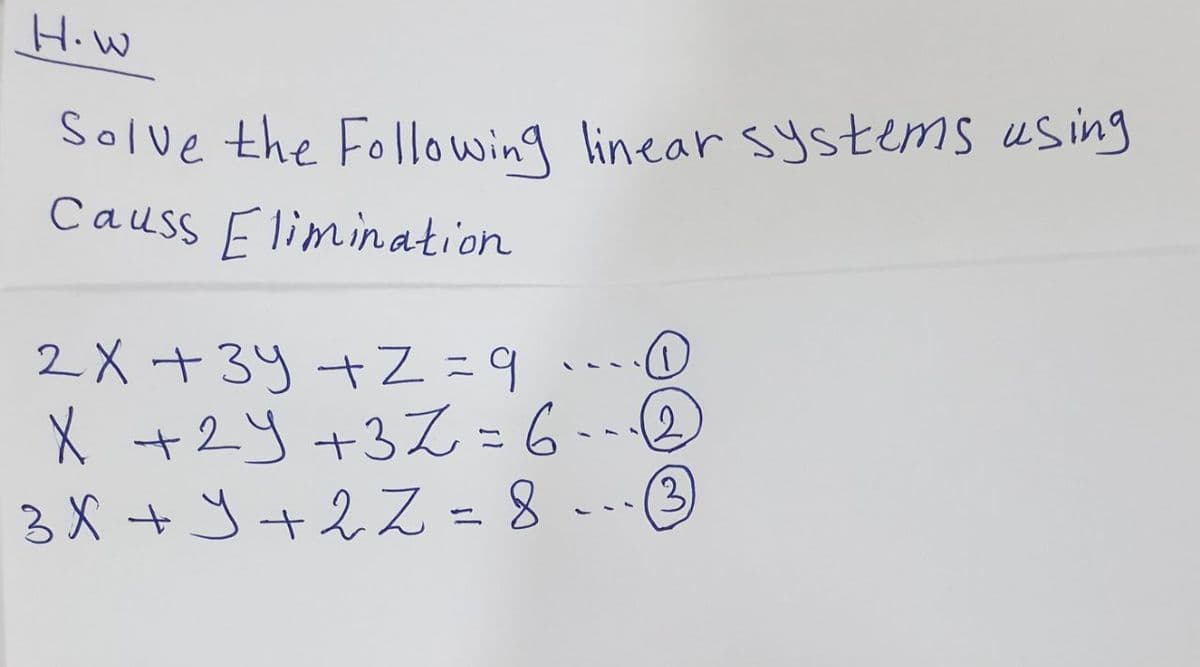 H.w
Solve the Following linear systems using
Causs Elimination
2X + 3y + Z = 9 ....①
X + 2y + 3Z = 6 ---②
3X + y + 2Z = 8 ---③